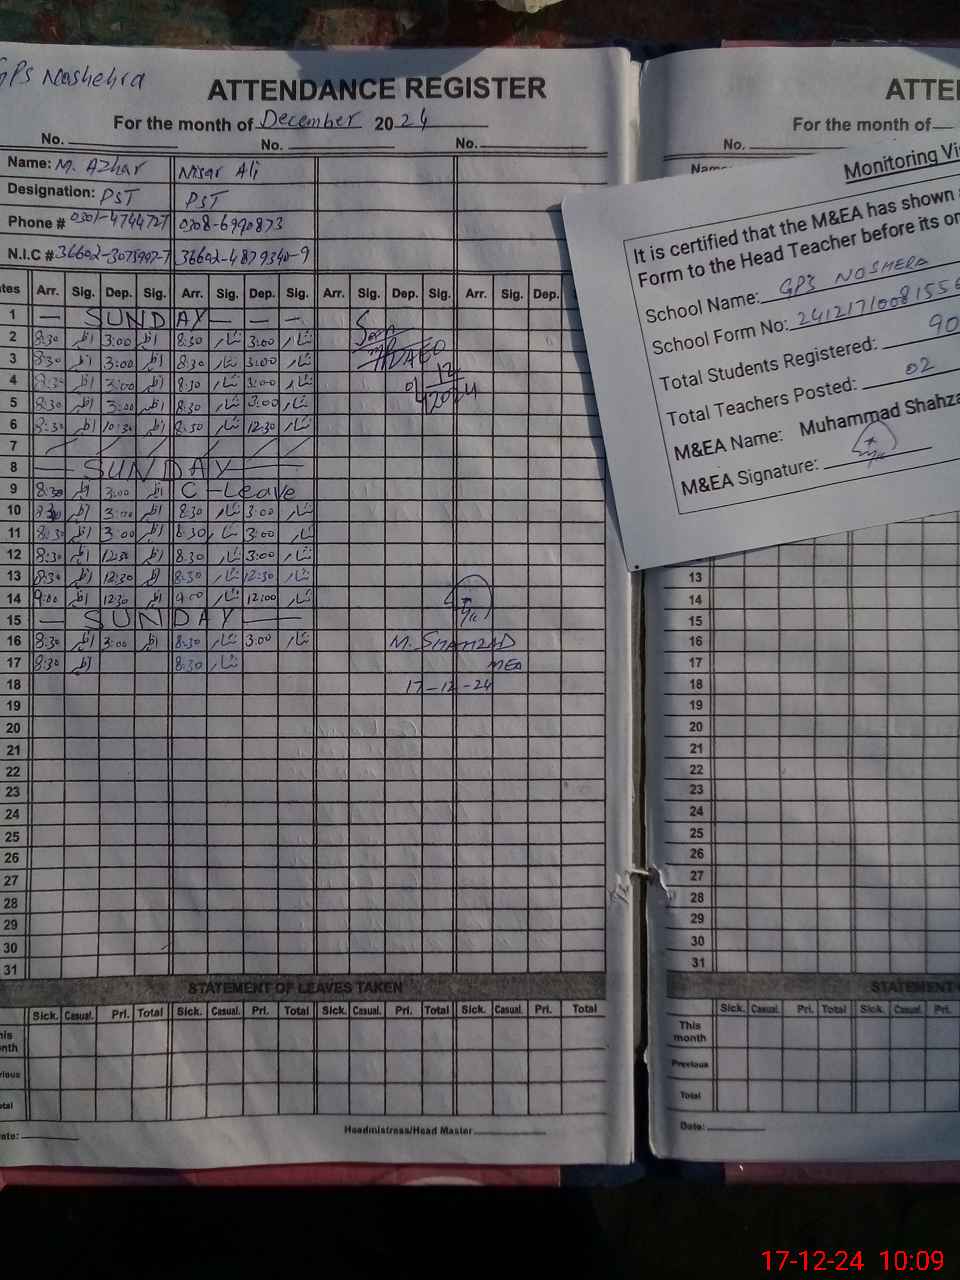 GPS Noshehra
ATTENDANCE REGISTER
For the month of December 2024
No. No. No.
Name: M. Azhar Nisar Ali
Designation: PST PST
Phone # 0301-4744727 0308-6990873
N.I.C # 36602-3075997-7 36602-4879340-9
Arr. Sig. Dep. Sig. Arr. Sig. Dep. Sig. Arr. Sig. Dep. Sig. Arr. Sig. Dep.
1 — SUNDAY — — -
2 8:30 3:00 8:30 نثار 3:00 نثار
3 8:30 3:00 8:30 نثار 3:00 نثار
4 8:30 3:00 8:30 نثار 3:00 نثار
5 8:30 3:00 8:30 نثار 3:00 نثار
6 8:30 10:30 8:30 نثار 12:30 نثار
7
8 — SUNDAY —
9 8:30 3:00 C-Leave
10 8:30 3:00 8:30 نثار 3:00 نثار
11 8:30 3:00 8:30 نثار 3:00 نثار
12 8:30 12:30 8:30 نثار 3:00 نثار
13 8:30 12:30 8:30 نثار 12:30 نثار
14 9:00 12:30 9:00 نثار 12:00 نثار
15 — SUNDAY —
16 8:30 3:00 8:30 نثار 3:00 نثار
17 8:30 8:30 نثار
18
19
20
21
22
23
24
25
26
27
28
29
30
31
12
2024
M. SHAHZAD
MEA
17-12-24
STATEMENT OF LEAVES TAKEN
Sick. Casual. Pri. Total Sick. Casual. Pri. Total Sick. Casual. Pri. Total Sick. Casual. Pri. Total
Headmistress/Head Master
For the month of
No.
Monitoring
It is certified that the M&EA has shown
Form to the Head Teacher before its
School Name: GPS NOSHERA
School Form No:
Total Students Registered: 90
Total Teachers Posted: 02
M&EA Name: Muhammad
M&EA Signature:
13
14
15
16
17
18
19
20
21
22
23
24
25
26
27
28
29
30
31
Sick. Casual. Pri. Total Sick. Casual. Pri.
This month
Previous
Total
Date:
17-12-24 10:09